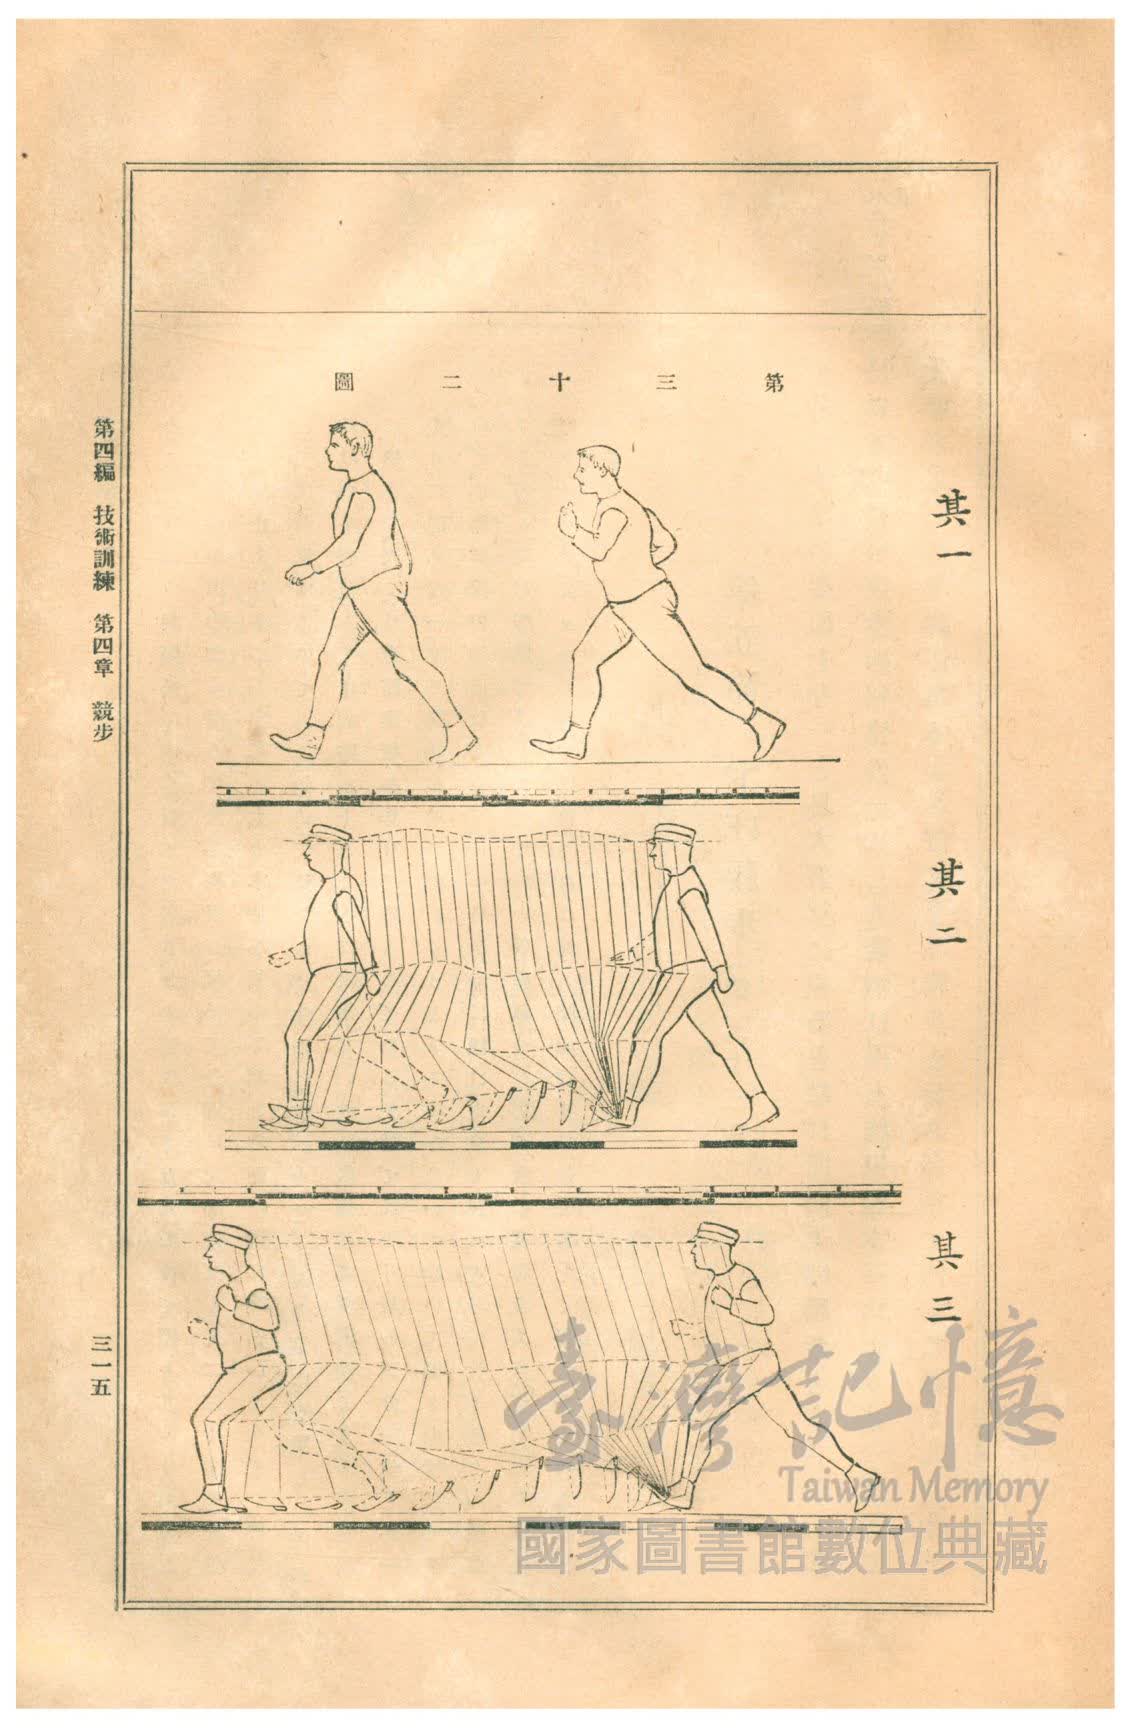 第三十二圖
其一
其二
其三
第四編 技術訓練 第四章 競步
三一五
臺灣記憶
Taiwan Memory
國家圖書館數位典藏